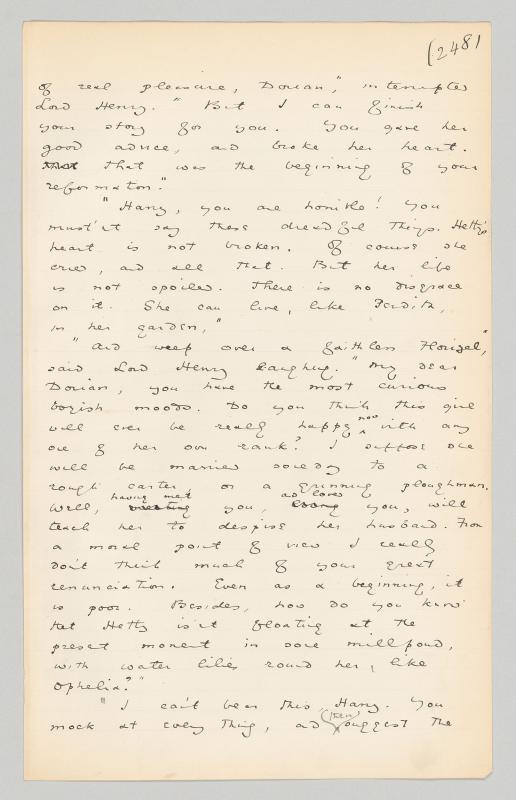 (248)
of real pleasure, Dorian," interrupted
Lord Henry. "But I can finish
your story for you. You gave her
good advice, and broke her heart.
that That was the beginning of your
reformation."
"Harry, you are horrible! You
mustn't say these dreadful things. Hetty's
heart is not broken. Of course she
cried, and all that. But her life
is not spoiled. There is no disgrace
on it. She can live, like Perdita,
in her garden,"
"And weep over a faithless Florizel,"
said Lord Henry laughing. "My dear
Dorian, you have the most curious
boyish moods. Do you think this girl
will ever be really happy now with any
one of her own rank? I suppose she
will be married some day to a
rough carter, or a grinning ploughman.
Well, meeting having met you, loving and loved you, will
teach her to despise her husband. From
a moral point of view I really
don't think much of your great
renunciation. Even as a beginning, it
is poor. Besides, how do you know
that Hetty isn't floating at the
present moment in some mill pond,
with water lilies round her, like
Ophelia?"
"I can't bear this, Harry. You
mock at everything, and then suggest the